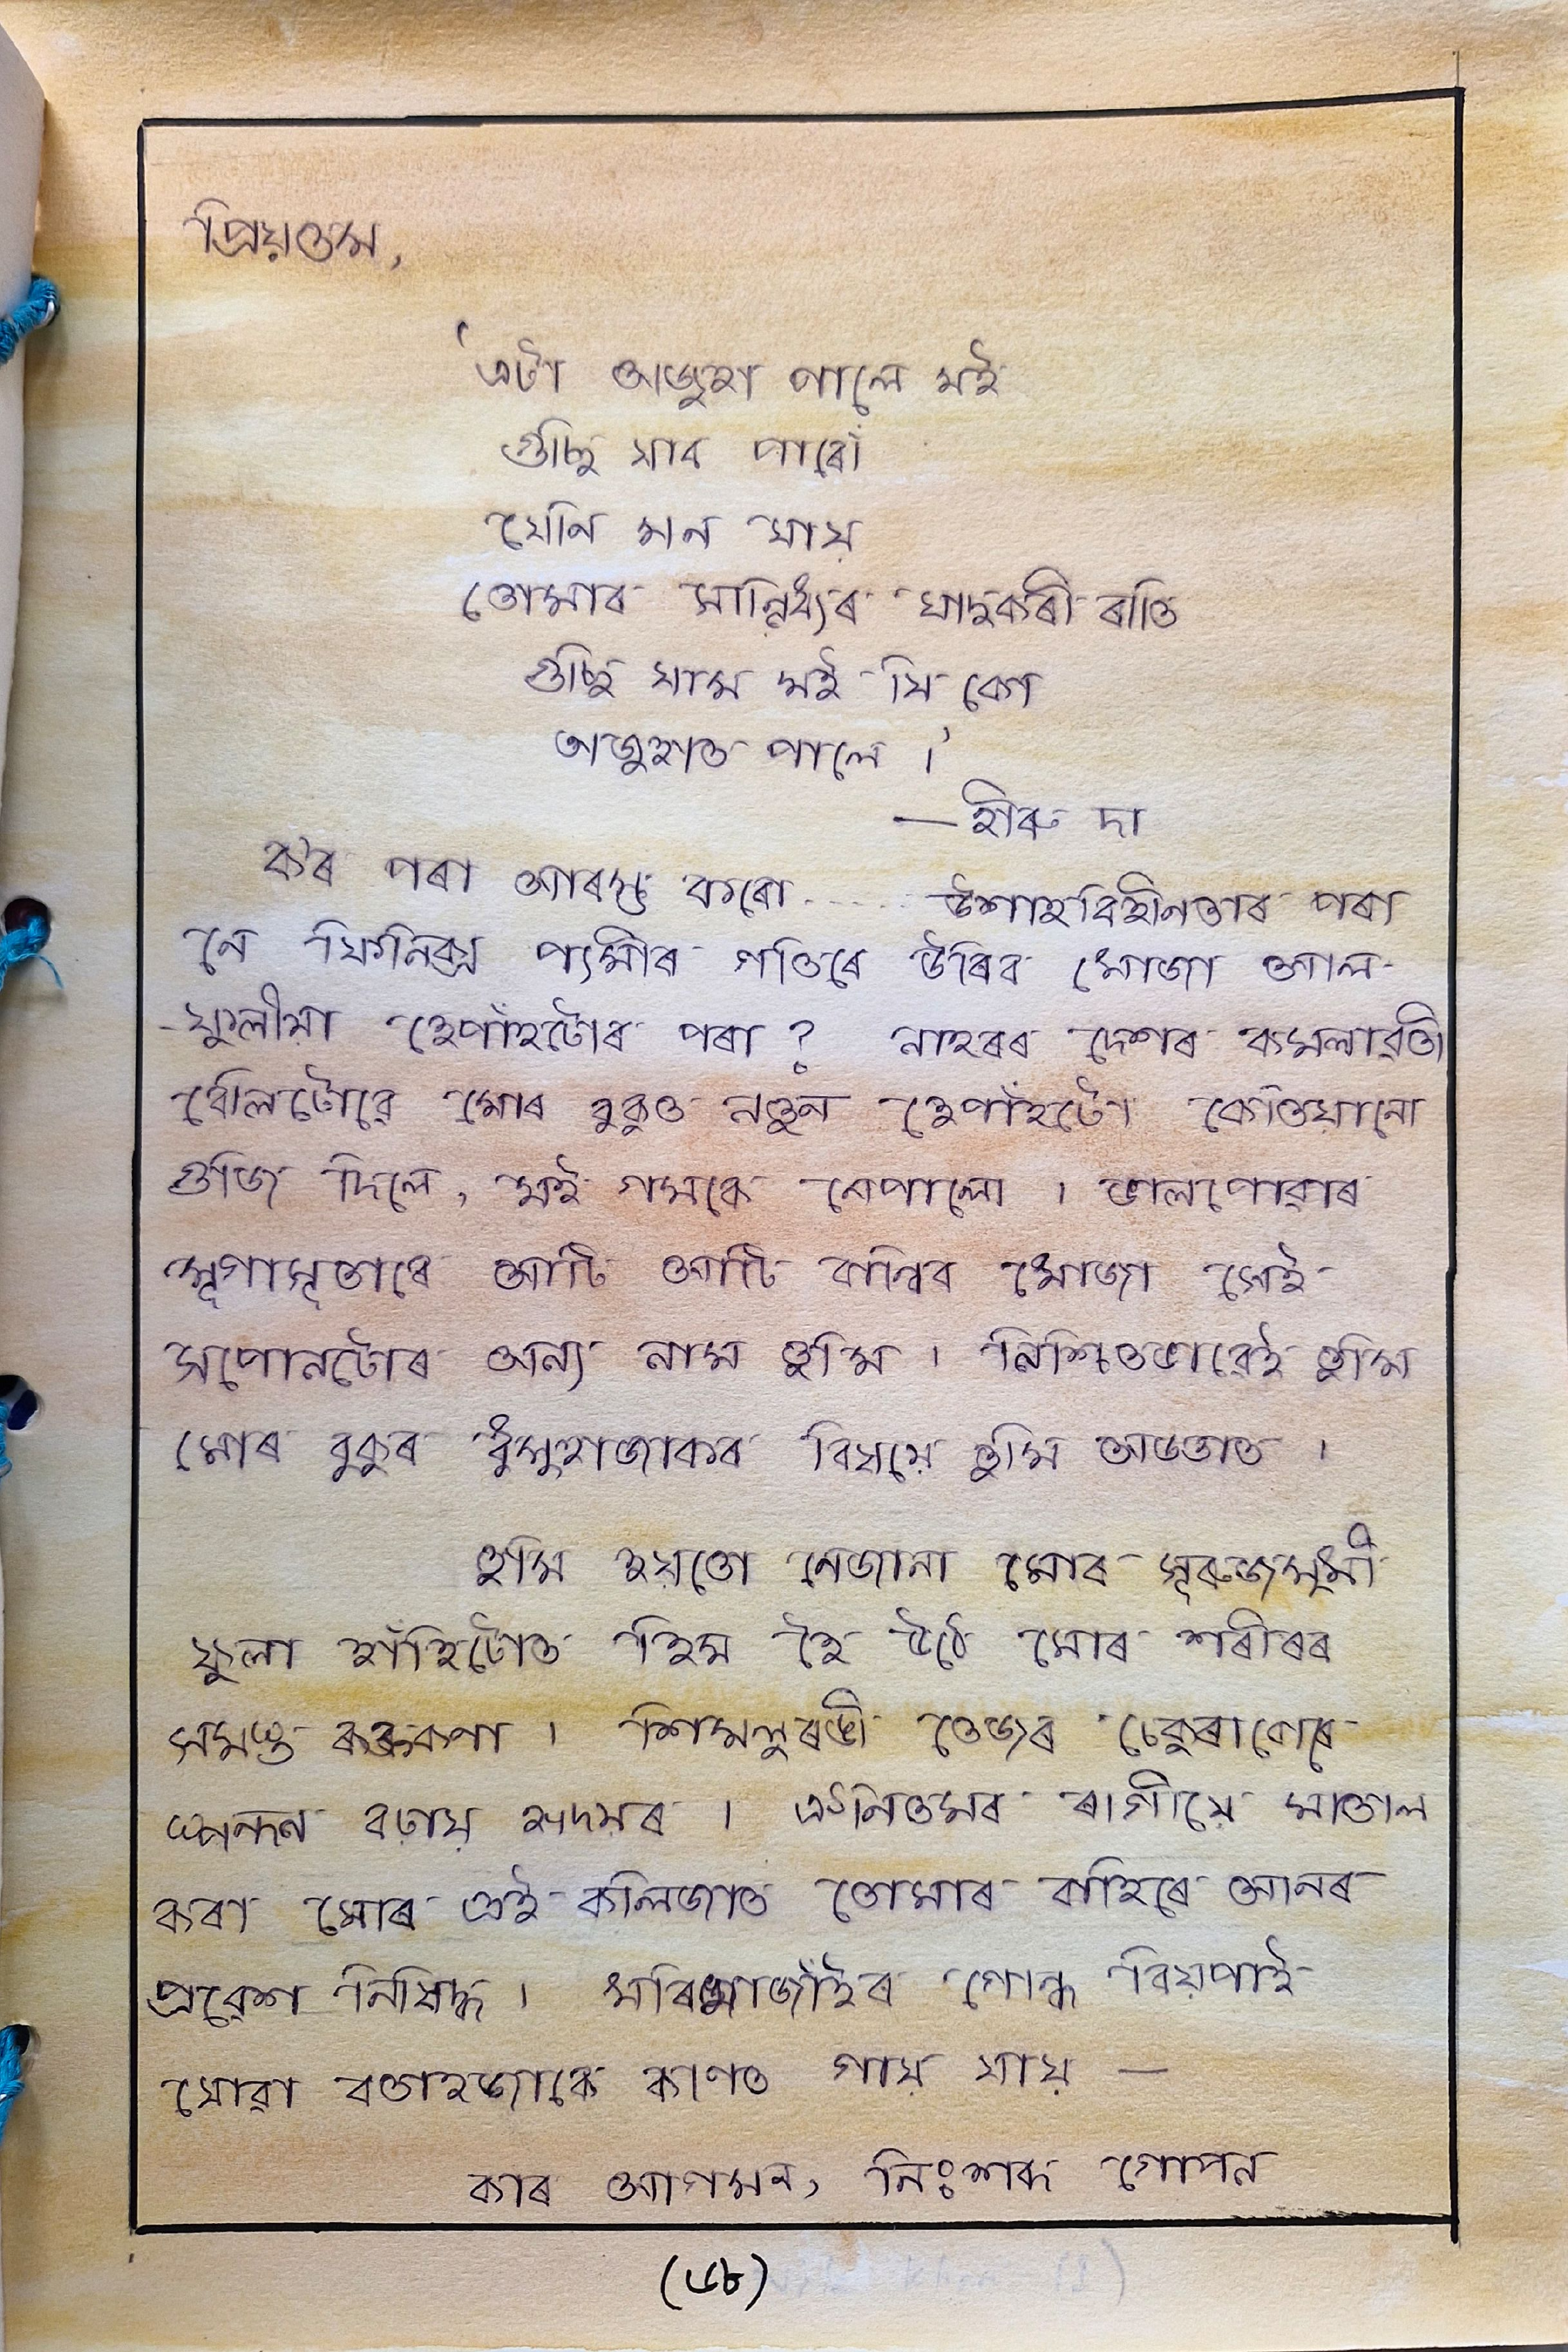 প্ৰিয়তম,
‘এটা অজুহা পালে মই
গুচি যাব পাৰোঁ
যেনি মন যায়
তোমাৰ সান্নিধ্যৰ যাদুকৰী ৰাতি
গুচি যাম মই যি কো
অজুহাত পালে ।’
— হীৰু দা
ক'ৰ পৰা আৰম্ভ কৰো...... উশাহবিহীনতাৰ পৰা
নে ফিনিক্স পক্ষীৰ গতিৰে উৰিব খোজা আল-
-ফুলীয়া হেপাঁহটোৰ পৰা ? নাহৰৰ দেশৰ কমলাৱতী
বেলিটোৱে মোৰ বুকুত নতুন হেপাঁহটো কেতিয়ানো
গুজি দিলে, মই গমকে নেপালো । ভালপোৱাৰ
মৃগামৃতাৰে আটি আটি বান্ধিব খোজা সেই
সপোনটোৰ অন্য নাম তুমি । নিশ্চিতভাৱেই তুমি
মোৰ বুকুৰ ধুমুহাজাকৰ বিষয়ে তুমি অজ্ঞাত ।
তুমি হয়তো নেজানা মোৰ সূৰুজমুখী
ফুলা হাঁহিটোত হিম হৈ উঠে মোৰ শৰীৰৰ
সমস্ত ৰক্তকণা । শিমলুৰঙী তেজৰ চেকুৰাবোৰে
স্পন্দন বঢ়ায় হৃদয়ৰ । ঐনিতমৰ ৰাগীয়ে মাতাল
কৰা মোৰ এই কলিজাত তোমাৰ বাহিৰে আনৰ
প্ৰৱেশ নিষিদ্ধ । খৰিকাজাঁইৰ গোন্ধ বিয়পাই
যোৱা বতাহজাকে কাণত গায় যায় —
কাৰ আগমন, নিঃশব্দ গোপন
(৬৮)